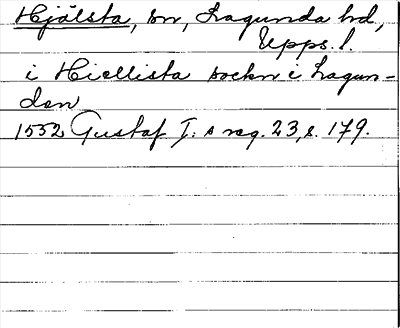 Hjälsta, sn, Lagunda hd,
Upps. l.
i Hiellista sockn i Lagun-
den
1552 Gustaf I:s reg. 23, s. 179.